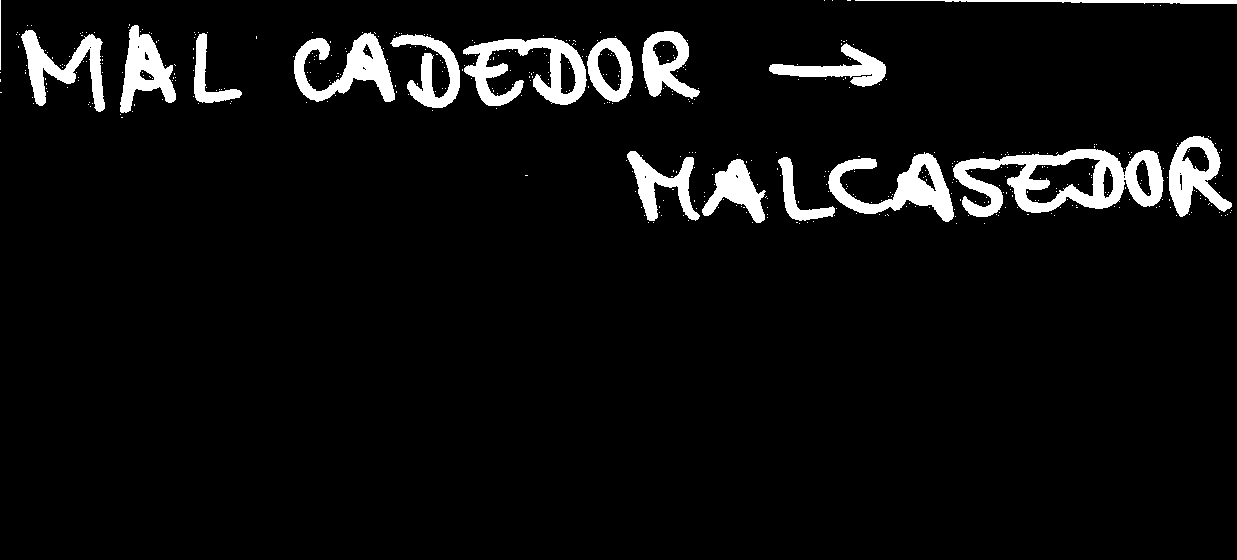 MAL CADEDOR →
MALCASEDOR